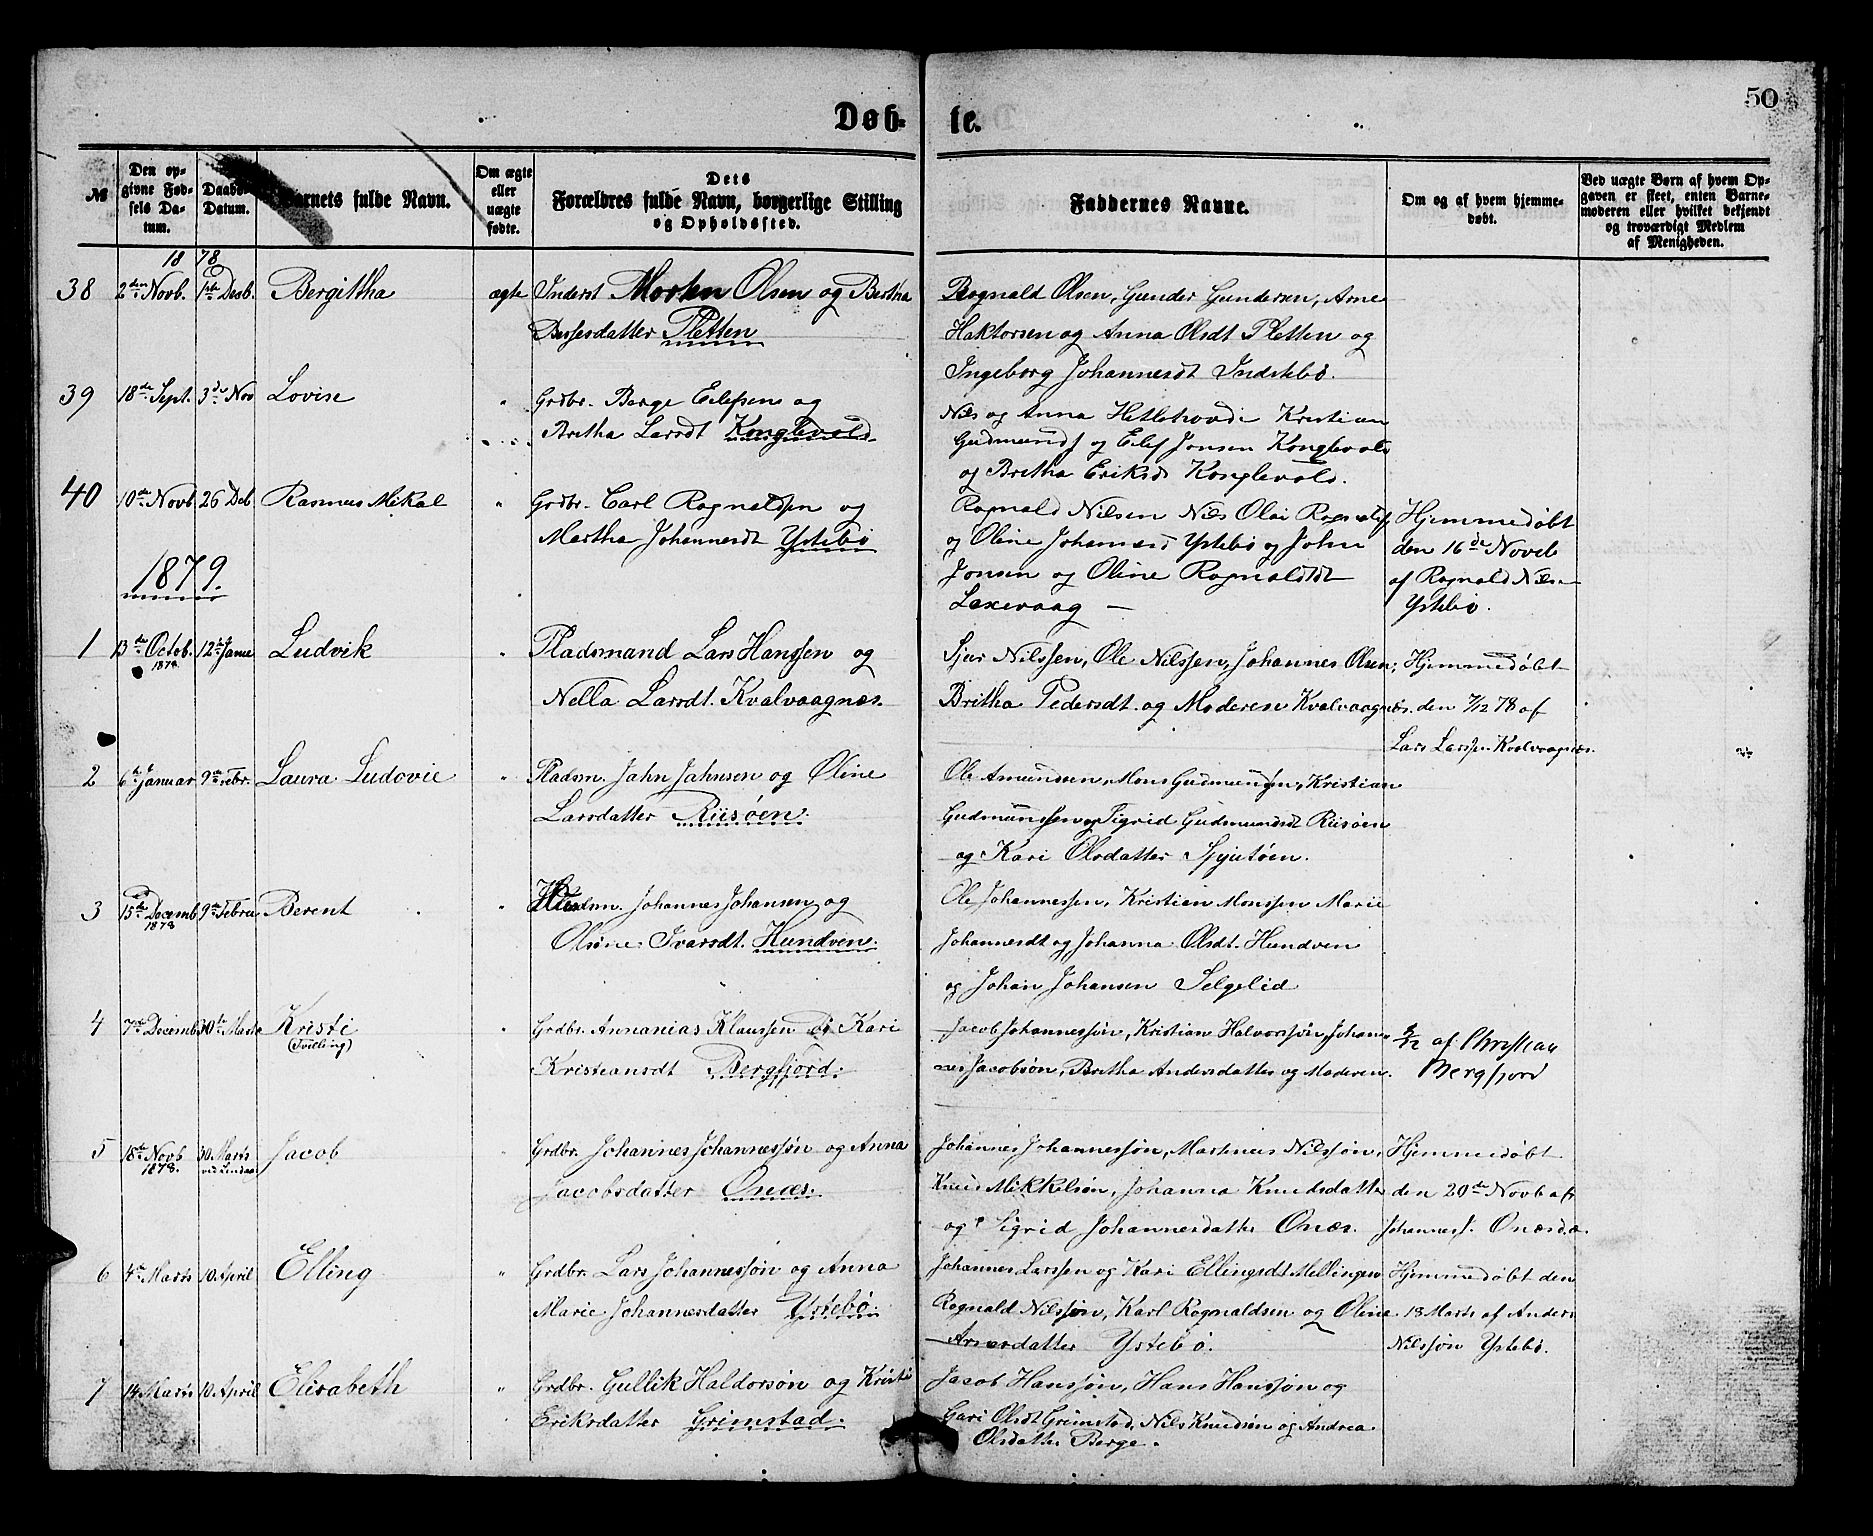 50
Døb-
te.
№
Den op-
givne Fød-
sels Da-
tum.
Daabs-
Datum.
Barnets fulde Navn.
Om ægte
eller
uægte
fødte.
Dets
Forældres fulde Navn, borgerlige Stilling
og Opholdssted.
Faddernes Navne.
Om og af hvem hjemme-
døbt.
Ved uægte Børn af hvem Op-
gaven er skeet, enten Barne-
moderen eller hvilket bekjendt
og troværdigt Medlem
af Menigheden.
1878
38 2den Novb. 1ste Desb. Bergittha ægte Inderst Morten Olsen og Bertha
Børgesdatter Pletten
Rognald Olsen, Gunder Gundersen, Arne
Haktorsen og Anna Olsdt Pletten og
Ingeborg Johannesdt Indstebø.
39 18de Sept. 3de Nov Lovise " Grdbr. Berge Eilefsen og
Bretha Larsdt Konglevold
Nils og Anna Hetlehovde Kristian
Gudmunds og Elef Jonsen Konglevold
og Britha Eriksd Konglevold.
40 10de Novb 26 Deb Rasmus Mikal " Grdbr. Carl Rognaldsen og
Martha Johannesdt Ystebø
Rognald Nilsen Nils Olai Rognalds
og Oline Johannesd Ystebø og John
Jonsen og Oline Rognaldsdt
Lexevaag —
Hjemmedøbt
den 16de Novb
af Rognald Nils-
Ystebø.
1879.
1 13de Octob. 1878 12te Janu Ludvik " Pladsmand Lars Hanssen og
Nella Larsdt. Kvalvaagnæs.
Sjur Nilssen, Ole Nilssen, Johannes Olsen,
Britha Pedersdt. og Moderen Kvalvaagnæs.
Hjemmedøbt
den 7/12 78 af
Lars Larss. Kvalvaagnæs.
2 6te Januar 9de Febr. Laura Ludovie " Pladsm. Jahn Jahnsen og Oline
Larsdatter Riisøen.
Ole Amundsen, Mons Gudmundsen, Kristian
Gudmundsen og Sigrid Gudmundsdt Riisøen
og Kari Olsdatter Spjutøen.
3 15de Decemb 1878 9de Febru Berent " Huusm. Johannes Johansen og
Olsine Ivarsdt. Hundven.
Ole Johannessen, Kristian Monssen Marie
Johannesdt og Johanna Olsdt. Hundven
og Johan Johansen Selgelid
4 7de Decemb 30te Marts Kristi
(Tvilling)
" Grdbr. Annanias Klaussen og Kari
Kristiansdt Bergfjord.
Jacob Johannessøn, Kristian Halvorssøn, Johan-
nes Jacobsøn, Britha Andersdatter og Moderen.
8/12 af Christian
Bergfjord
5 18de Novb 1878. 30 Marts
ved Lindaas
Jacob " Grdbr. Johannes Johannessøn og Anna
Jacobsdatter Onæs.
Johannes Johannessøn, Martinus Nilssøn,
Knud Mikkelsøn, Johanna Knudsdatter
og Sigrid Johannesdatter Onæs.
Hjemmedøbt
den 20de Novb af
Johannes J. Onæsdæ
6 4de Marts 10. April Elling " Grdbr. Lars Johannessøn og Anna
Marie Johannesdatter Ystebø.
Johannes Larssen og Kari Ellingsdt Mellingen
Rognald Nilssøn, Karl Rognaldsen og Oline
Arnesdatter Ystebø.
Hjemmedøbt den
18 Marts af Anders
Nilssøn Ystebø.
7 14 Marts 10. April Elisabeth " Grdbr. Gullik Haldorsøn og Kristi
Eriksdatter Grimstad.
Jacob Hanssøn, Hans Hanssøn og
Gari Olsdt Grimstad, Nils Knudsøn og Andrea
Olsdatter Berge.